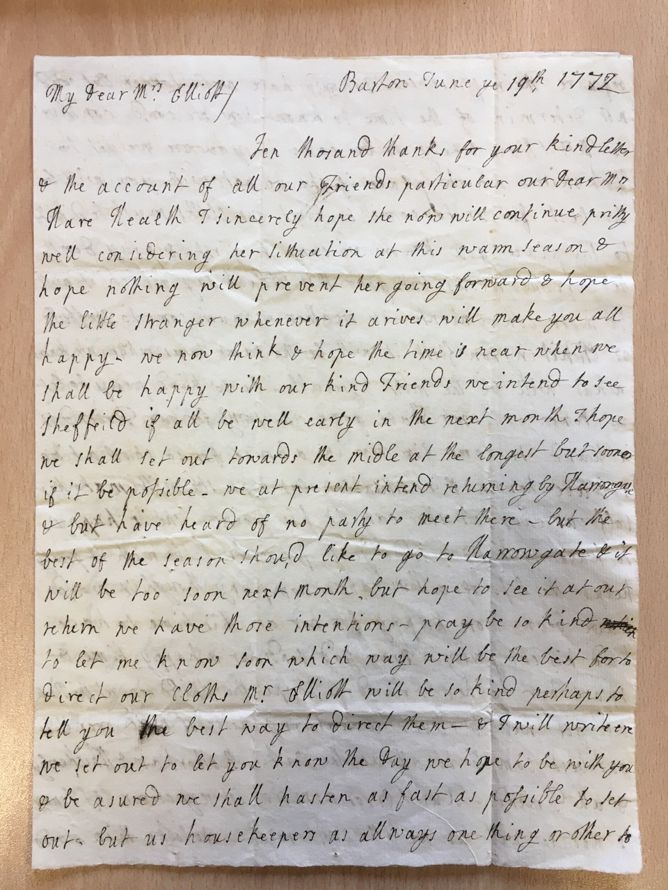 Barton June ye 19th 1772
My Dear Mrs Elliott/
Ten thosand thanks for your kind letter
& the account of all our Friends particular our Dear Mrs
Hare Health I sincerely hope she now will continue pritty
well considering her sittuation at this warm season &
hope nothing will prevent her going forward & hope
the little stranger whenever it arives will make you all
happy - we now think & hope the time is near when we
shall be happy with our kind Friends we intend to see
Sheffeild if all be well early in the next month I hope
we shall set out towards the midle at the longest but sooner
if it be possible - we at present intend returning by
& but have heard of no party to meet there - but the
best of the season should like to go to Harrowgate & it
will be too soon next month, but hope to see it at our
return we have those intentions - pray be so kind
to let me know soon which way will be the best for to
direct our Cloths Mr Elliott will be so kind perhaps to
tell you the best way to direct them - & I will write ere
we set out to let you know the Day we hope to be with you
& be asured we shall hasten as fast as possible to set
out - but us housekeepers as allways one thing or other to